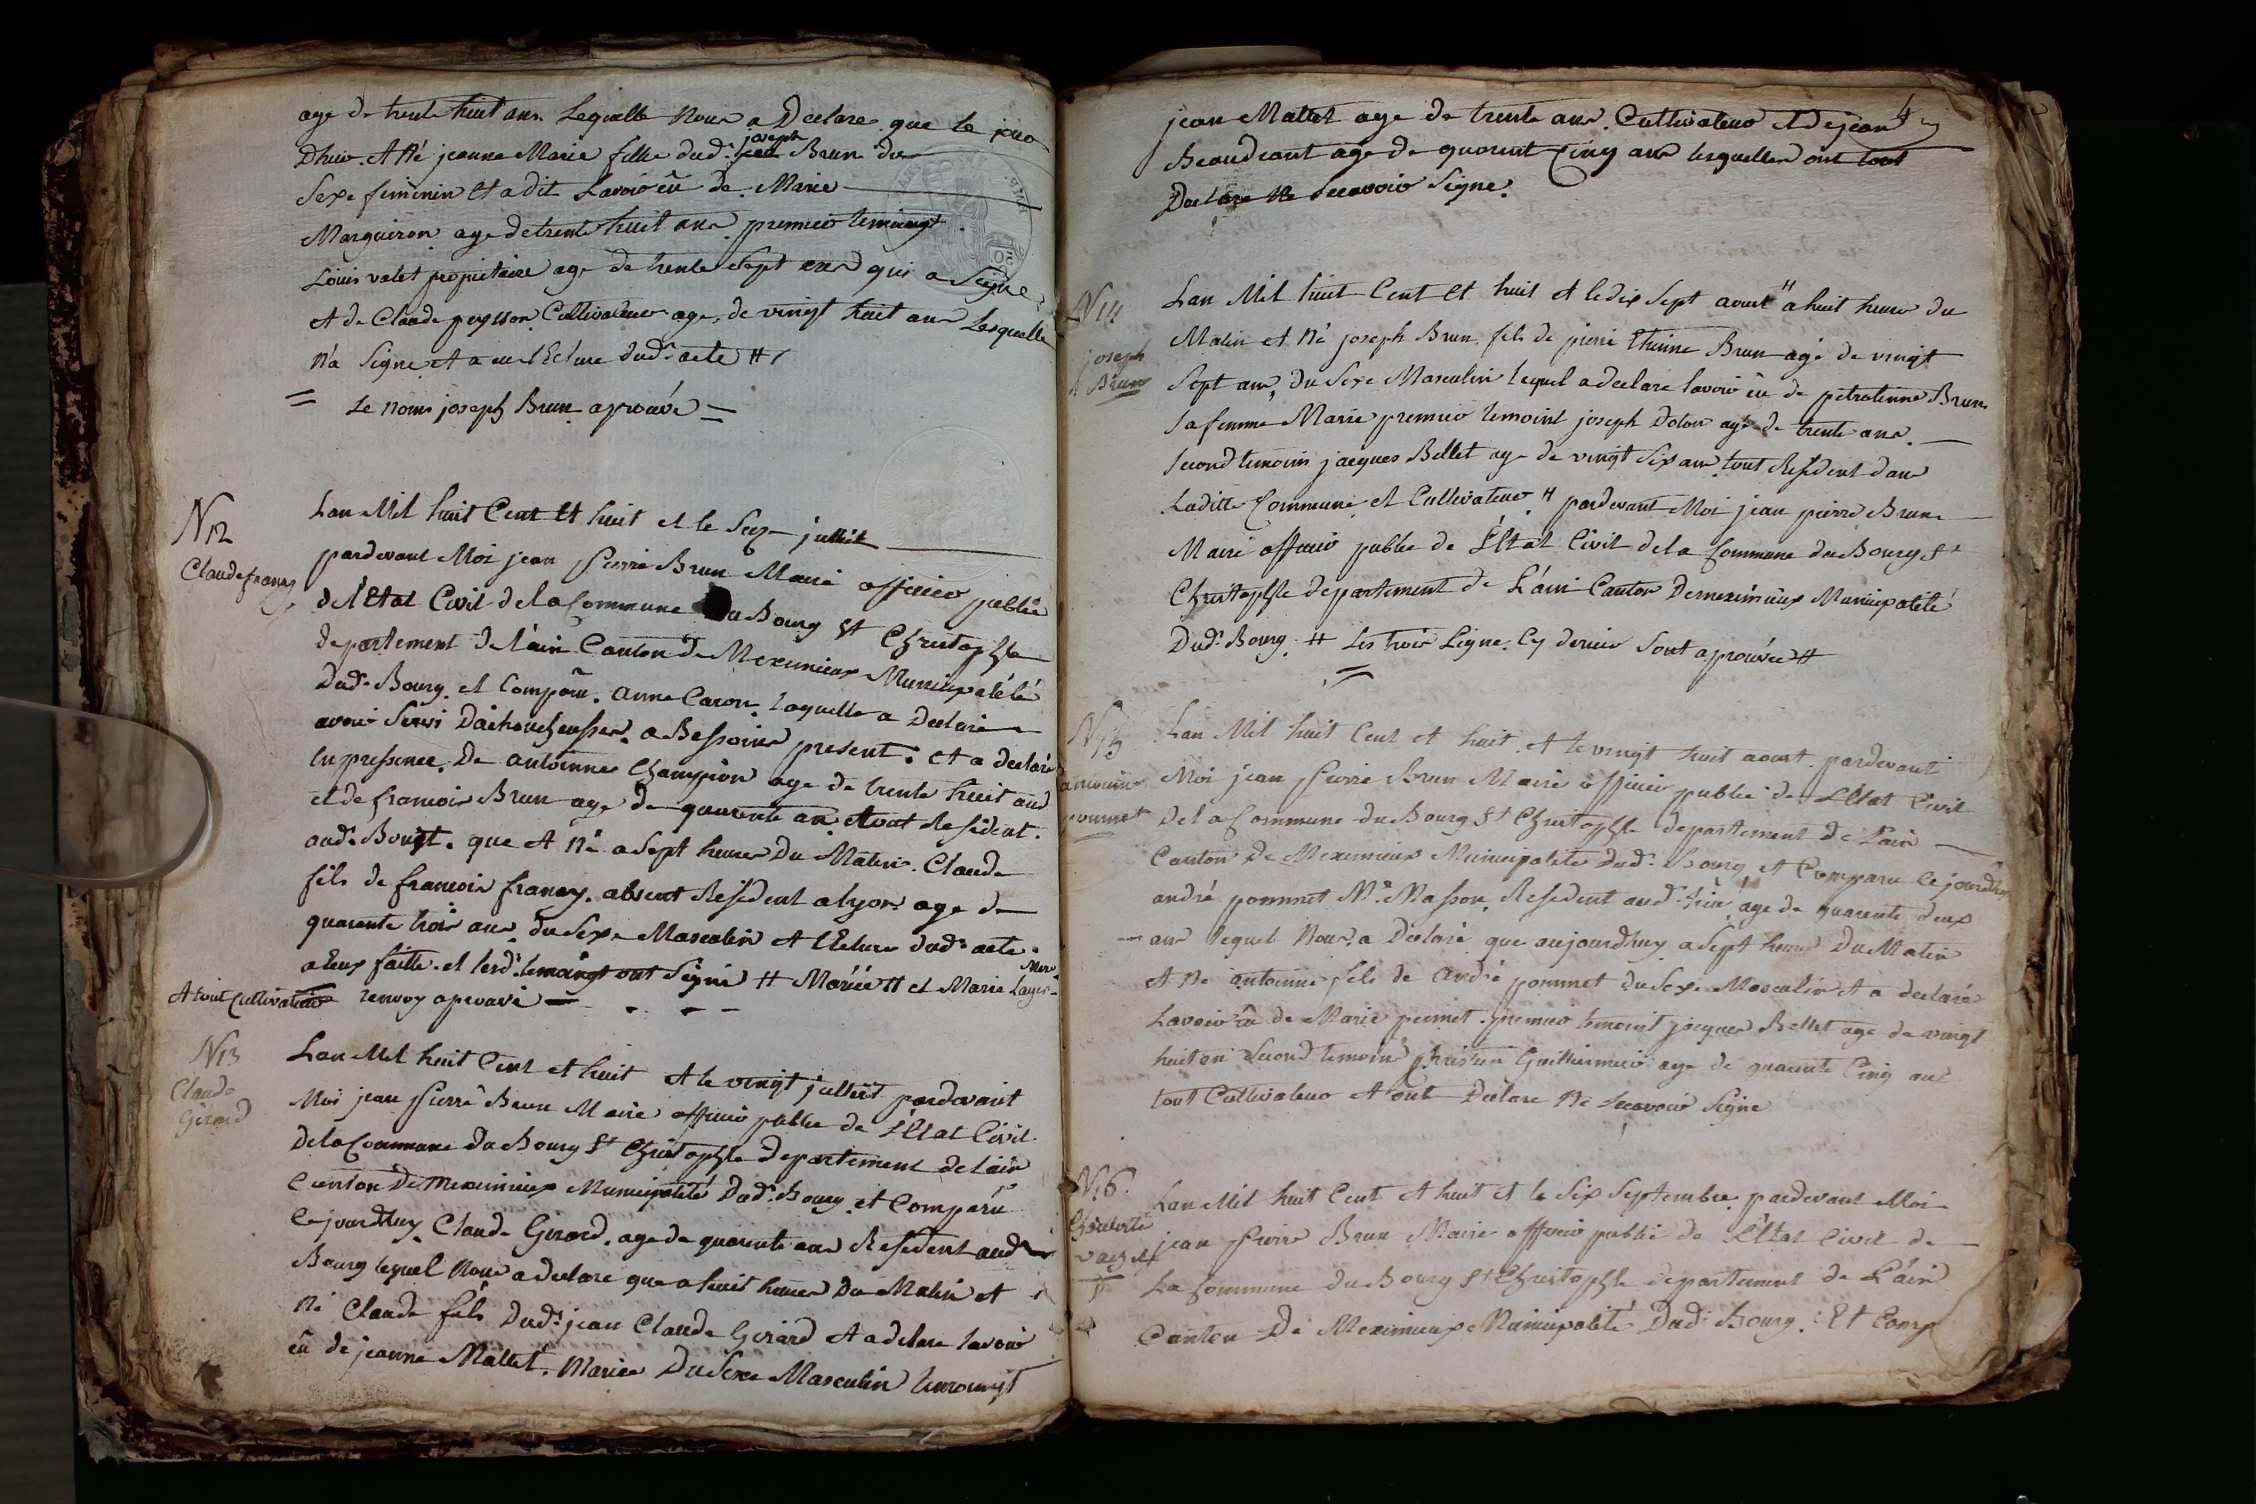 age de trente huit ans Lequelle nous a Declare que le jour
Dhuis. Est Né jeanne Marie fille dud. joseph Brun du
Sexe feminin Et a dit Lavoir eû de Marie
Marguiron age de trente huit ans premier temoingt
Louis valet propietaire age de trente Sept ans qui a Signe
et de Claude peysson Cultivateur age de vingt huit ans Lesquelle
n'a Signe et a eu lEcture dud. acte H
= Le nom joseph Brun aprouvé =
N 12
Claude francy
Lan Mil huit Cent Et huit et le Seze juillit
pardevant Moi jean pierre Brun Maire officier publie
de lEtat Civil de la Commune Du Bourg St Christophle
departement de lain Canton de Meximieux Municipalité
Dud. Bourg. et Comparu. anne Caron. Laquelle a Declare
avoir Servi Dachoucheusse. a Bessoins present. et a declaré
En pressence. De antoinne Champion age de trente huit ans
et de francois Brun age de quarente an et tout Resident
aud. Bougt. que et né a Sept heures Du Matin. Claude
fils de francois francy. absent Resident a lyon age de
quarente trois ans du Sexe Masculin et lEcture dud. acte
a Eux faitte. et lesd. temoingt ont Signé H Mariée H et Marie Mer Layer
et tout Cultivateur renvoy aprouvé
N 13
Claude
Girard
Lan Mil huit Cent et huit et le vingt juillit pardevant
Moi jean pierre Brun Maire officier publie de LEtat Civil
De la Commune Du Bourg St Christophle Departement de lain
Canton De Meximieux Municipalité Dud. Bourg. et Comparû
Cejourdhuy Claude Girard. age de quarente ans Resident aud.
Bourg lequel nous a declare que a huit heures Du Matin et
né Claude fils Dud. jean Claude Girard et a delare lavoir
eû de jeanne Mallet. Mariée Du Sexe Masculin temoingt
4
jean Mallet age de trente ans. Cultivateur et de jean
Beaudrant age de quarent Cinq ans lesquelles ont tout
Declare ne Scavoir Signe.
N 14
joseph
Brun
Lan Mil huit Cent et huit et le dix Sept aoust H a huit heure du
Matin et Né joseph Brun fils de pierre Etienne Brun agé de vingt
Sept ans, du Sexe Masculin lequel a declare lavoir eû de petrolinne Brun
Sa femme Marié premier temoint joseph Dolon agé de trente ans.
Second temoin jacques Bellet age de vingt Six ans tout Resident dans
Laditte Commune et Cultivateur H pardevant Moi jean pierre Brun
Maire officier publie de LEtat Civil de la Commune du Bourg St
Christophle departement de Lain Canton Demeximieux Municipalité
Dud. Bourg. H Les trois Ligne Cy dernier Sont aprouvée H
N 15
antoinne
pommet
Lan Mil huit Cent et huit. et le vingt huit aoust. pardevant
Moi jean pierre Brun Maire officier publie de LEtat Civil
De la Commune du Bourg St Christophle departement de Lain
Canton De Meximieux Municipalité Dud. Bourg et Comparu Cejourdhuy
andré pommet Me Masson. Resident aud. lieu age de quarente deux
ans lequel Nous a Declaré que aujourdhuy a Sept heures Du Matin
et Ne antoinne fils de andré pommet du Sexe Masculin et a declaré
Lavoir eû de Marie perinet. premier temoint jacques Bellet age de vingt
huit an Second temoin Guilliermier age de quarente Cinq ans
tout Cultivateur et ont Declare Ne Scavoir Signe
N 16.
Lan Mil huit Cent et huit et le Six Septembre pardevant Moi
jean pierre Brun Maire officier publié de LEtat Civil de
La Commune Du Bourg St Christophle departement de Lain
Canton De Meximieux Municipalité Dud. Bourg. Et Comp